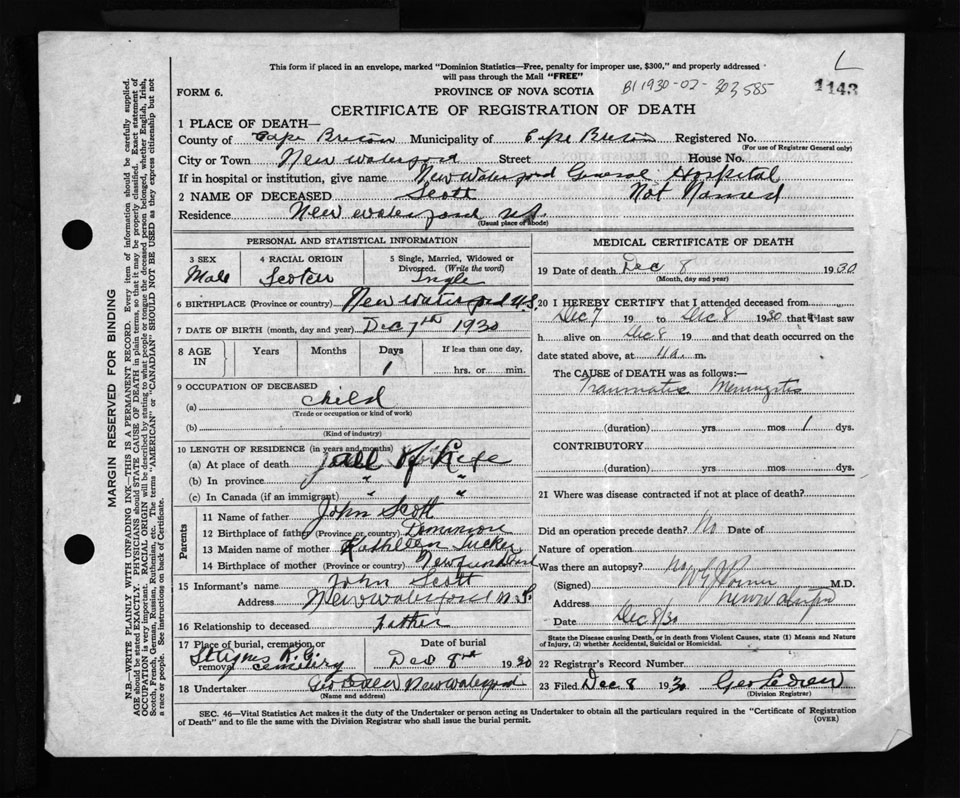 This form if placed in an envelope, marked "Dominion Statistics—Free, penalty for improper use, $300," and properly addressed
will pass through the Mail "FREE"
L
FORM 6.
PROVINCE OF NOVA SCOTIA
B1 1930-02-303585
1143
CERTIFICATE OF REGISTRATION OF DEATH
1 PLACE OF DEATH—
County of Cape Breton Municipality of Cape Breton Registered No.
(For use of Registrar General only)
City or Town New Waterford Street House No.
If in hospital or institution, give name New Waterford General Hospital
2 NAME OF DECEASED Scott Not Named
Residence New Waterford N.S.
(Usual place of abode)
PERSONAL AND STATISTICAL INFORMATION
3 SEX
Male
4 RACIAL ORIGIN
Scotch
5 Single, Married, Widowed or
Divorged. (Write the word)
Single
6 BIRTHPLACE (Province or country) New Waterford N.S.
7 DATE OF BIRTH (month, day and year) Dec 7th 1930
8 AGE IN
Years Months Days If less than one day,
1 hrs. or min.
9 OCCUPATION OF DECEASED
(a) Child
(Trade or occupation or kind of work)
(b)
(Kind of industry)
10 LENGTH OF RESIDENCE (in years and months)
(a) At place of death all of Life
(b) In province " "
(c) In Canada (if an immigrant) " "
Parents
11 Name of father John Scott
12 Birthplace of father (Province or country) Dominion
13 Maiden name of mother Kathleen Tucker
14 Birthplace of mother (Province or country) Newfoundland
15 Informant's name John Scott
Address New Waterford N.S.
16 Relationship to deceased Father
17 Place of burial, cremation or
removal St Agnes R.C. Cemetery
Date of burial
Dec 8th 1930
18 Undertaker Geo New Waterford
(Name and address)
MEDICAL CERTIFICATE OF DEATH
19 Date of death Dec 8 1930
(Month, day and year)
20 I HEREBY CERTIFY that I attended deceased from
Dec 7 19 to Dec 8 1930 that I last saw
h alive on Dec 8 19 and that death occurred on the
date stated above, at m.
The CAUSE of DEATH was as follows:—
Traumatic Meningitis
(duration) yrs. mos 1 dys.
CONTRIBUTORY
(duration) yrs. mos. dys.
21 Where was disease contracted if not at place of death?
Did an operation precede death? No Date of
Nature of operation
Was there an autopsy? No
(Signed) M.D.
Address New Waterford
Date Dec 8/30
State the Disease causing Death, or in death from Violent Causes, state (1) Means and Nature
of Injury, (2) whether Accidental, Suicidal or Homicidal.
22 Registrar's Record Number
23 Filed Dec 8 1930 Geo
(Division Registrar)
SEC. 46—Vital Statistics Act makes it the duty of the Undertaker or person acting as Undertaker to obtain all the particulars required in the "Certificate of Registration
of Death" and to file the same with the Division Registrar who shall issue the burial permit.
(OVER)
MARGIN RESERVED FOR BINDING
N.B.—WRITE PLAINLY WITH UNFADING INK—THIS IS A PERMANENT RECORD. Every item of information should be carefully supplied.
AGE should be stated EXACTLY. PHYSICIANS should STATE CAUSE OF DEATH in plain terms, so that it may be properly classified. Exact statement of
OCCUPATION is very important. RACIAL ORIGIN will be described by stating to what people or tongue the deceased person belonged, whether English, Irish,
Scotch, French, German, Russian, Ruthenian, etc. The terms "AMERICAN" or "CANADIAN" SHOULD NOT BE USED as they express citizenship but not
a race or people. See instructions on back of Certificate.